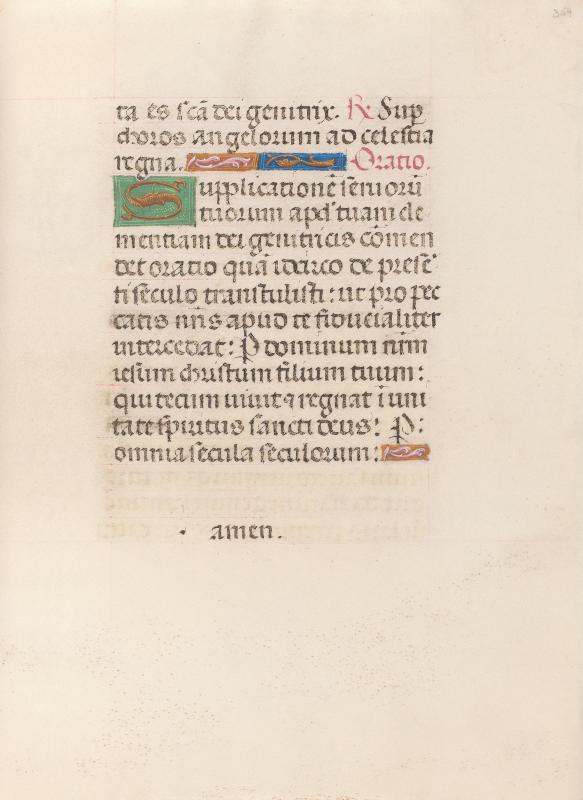 364
ta es scā dei genitrix. ℟. Sup̄
choros angelorum ad celestia
regna. Oratio.
Supplicationē servorū
tuorum apd' tuam cle
mentiam dei genitricis cōmen
det oratio quā idcirco de presē
ti seculo transtulisti: ut pro pec
catis nr̄is apud te fiducialiter
intercedat: P̱ dominum nr̄m
iesum christum filium tuum:
qui tecum vivit ⁊ regnat ī uni
tate spiritus sancti deus: P̱:
omnia secula seculorum:
amen.